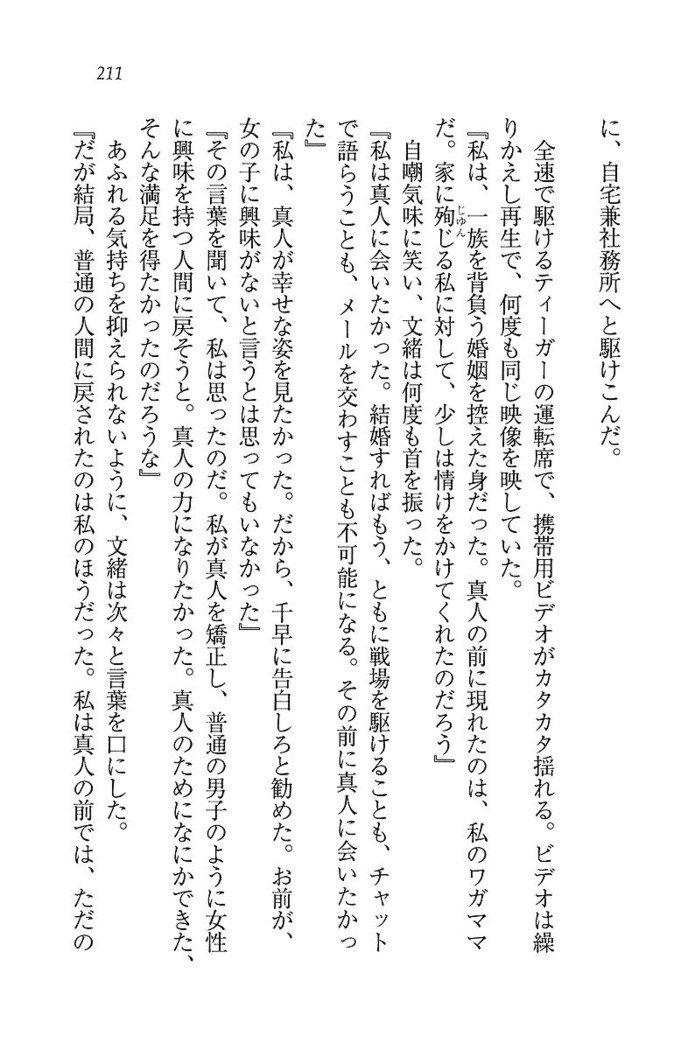 211
に、自宅兼社務所へと駆けこんだ。
全速で駆けるティーガーの運転席で、携帯用ビデオがカタカタ揺れる。ビデオは繰
りかえし再生で、何度も同じ映像を映していた。
『私は、一族を背負う婚姻を控えた身だった。真人の前に現れたのは、私のワガママ
だ。家に殉じる私に対して、少しは情けをかけてくれたのだろう』
じゅん
自嘲気味に笑い、文緒は何度も首を振った。
『私は真人に会いたかった。結婚すればもう、ともに戦場を駆けることも、チャット
で語らうことも、メールを交わすことも不可能になる。その前に真人に会いたかっ
た』
『私は、真人が幸せな姿を見たかった。だから、千早に告白しろと勧めた。お前が、
女の子に興味がないと言うとは思ってもいなかった』
『その言葉を聞いて、私は思ったのだ。私が真人を矯正し、普通の男子のように女性
に興味を持つ人間に戻そうと。真人の力になりたかった。真人のためになにかできた、
そんな満足を得たかったのだろうな』
あふれる気持ちを抑えられないように、文緒は次々と言葉を口にした。
『だが結局、普通の人間に戻されたのは私のほうだった。私は真人の前では、ただの